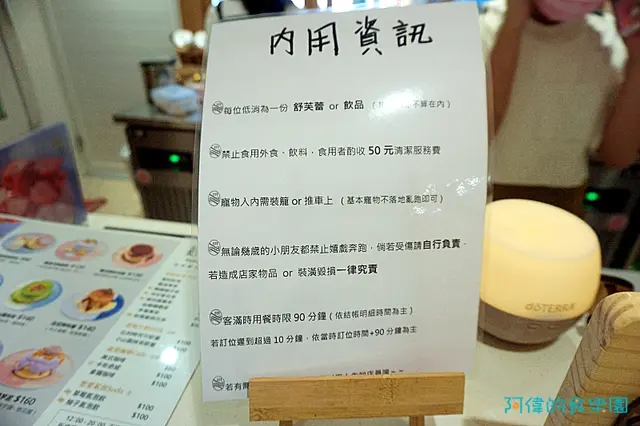 內用資訊
每位低消為一份 舒芙蕾 or 飲品 ( 不算在內 )
禁止食用外食、飲料，食用者酌收 50 元清潔服務費
寵物入內需裝籠 or 推車上 ( 基本寵物不落地亂跑即可 )
無論幾歲的小朋友都禁止嬉戲奔跑，倘若受傷請自行負責，
若造成店家物品 or 裝潢毀損一律究責
客滿時用餐時限 90 分鐘 ( 依結帳明細時間為主 )
若訂位遲到超過 10 分鐘，依當時訂位時間+90 分鐘為主
若有
dōTERRA
$160
$160
$160
$100
$100
$100
$100
12:00-20:00
阿偉的食樂園